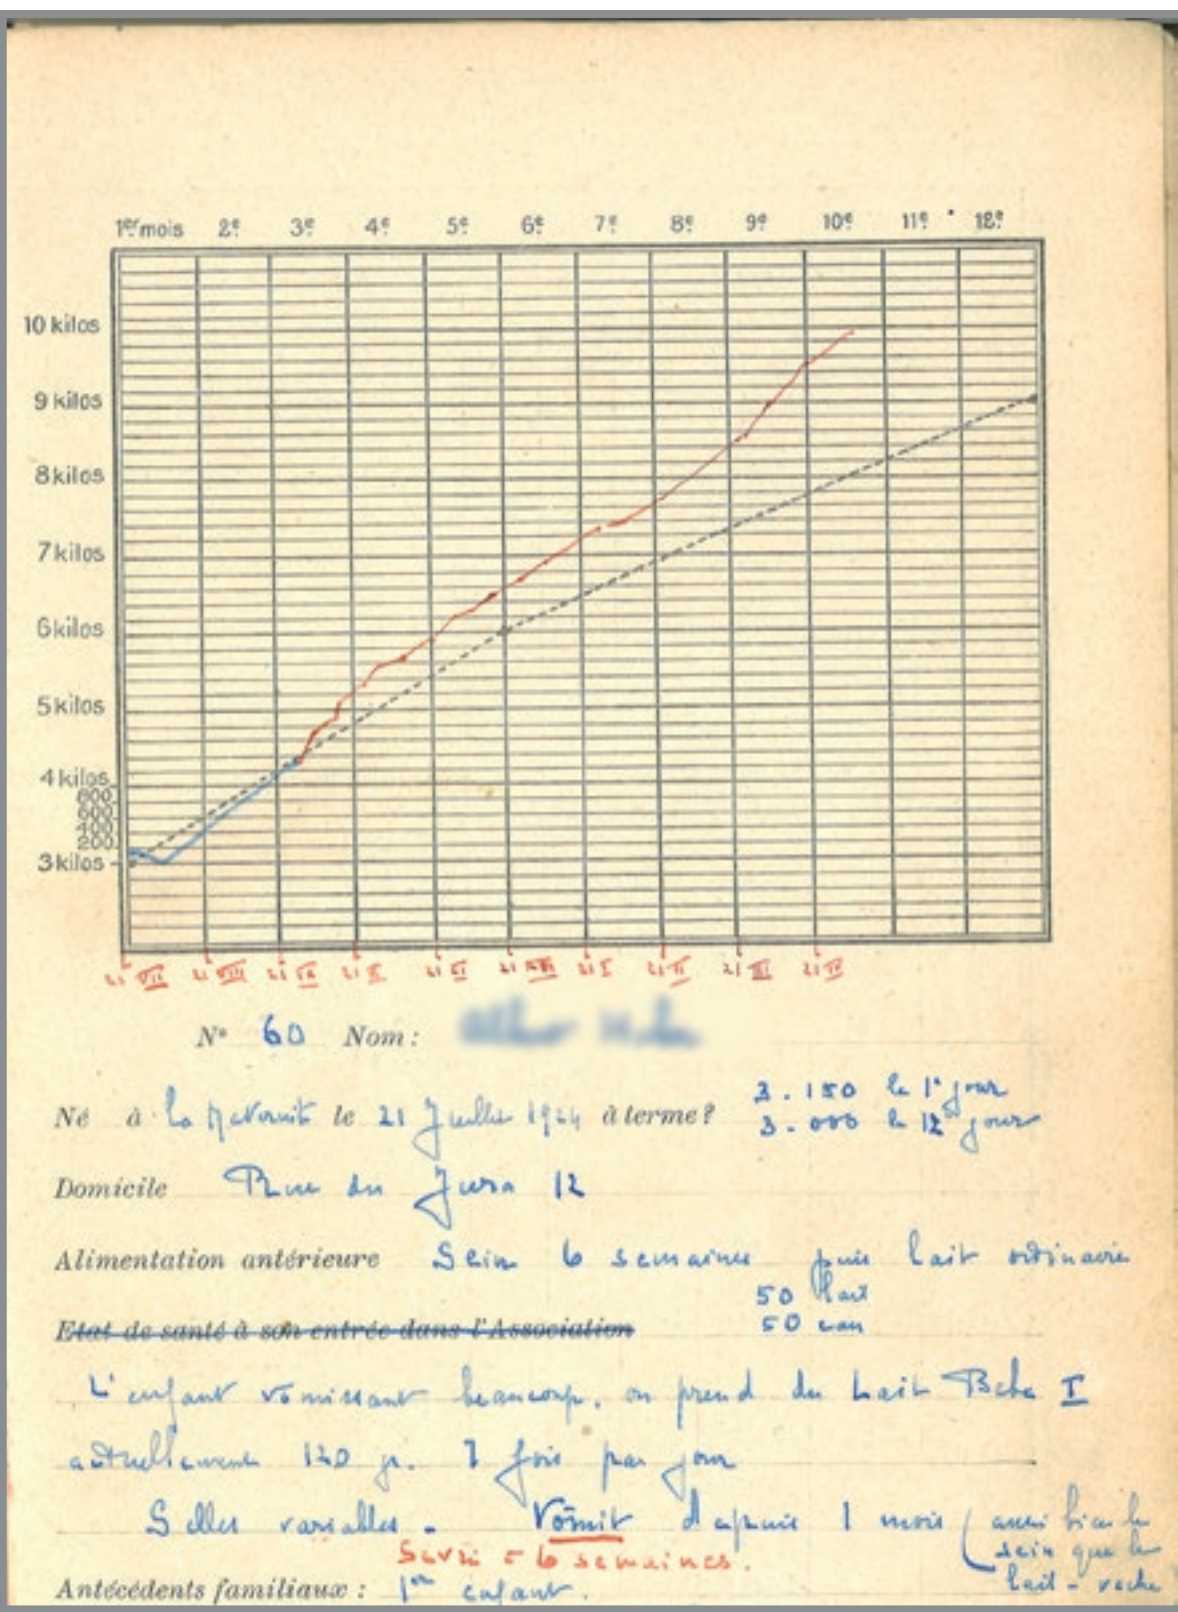 1er mois 2e 3e 4e 5e 6e 7e 8e 9e 10e 11e 12e
10 kilos
9 kilos
8 kilos
7 kilos
6 kilos
5 kilos
4 kilos
800
600
400
200
3 kilos
21 VII 21 VIII 21 IX 21 X 21 XI 21 XII 21 I 21 II 21 III 21 IV
N° 60 Nom :
3.150 le 1er jour
Né à la Maternité le 21 Juillet 1924 à terme ?
3.000 le 12e jour
Domicile Rue du Jura 12
Alimentation antérieure Sein 6 semaines puis lait ordinaire
50 lait
Etat de santé à son entrée dans l'Association
50 eau
L'enfant vomissant beaucoup, on prend du Lait Beba I
actuellement 120 gr. 7 fois par jour
Selles variables - Vomit depuis 1 mois ( aussi bien le
sein que le
lait - vache
Sevré à 6 semaines.
Antécédents familiaux : 1er enfant.